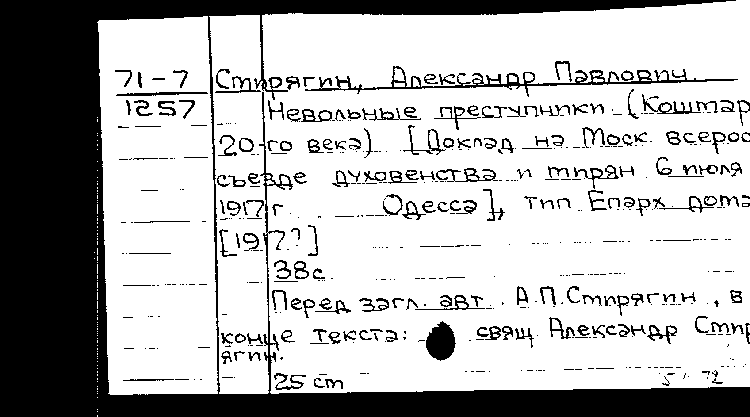 71-7 Стирягин, Александр Павлович.
1257 Невольные преступники. (Коштар
20-го века) [Доклад на Моск. всерос
съезде духовенства и мирян 6 июля
1917 г Одесса], тип Епарх дома
[1917?]
38с.
Перед загл. авт. А.П.Стирягин, в
конце текста: свящ Александр Стир
ягин.
25 cm